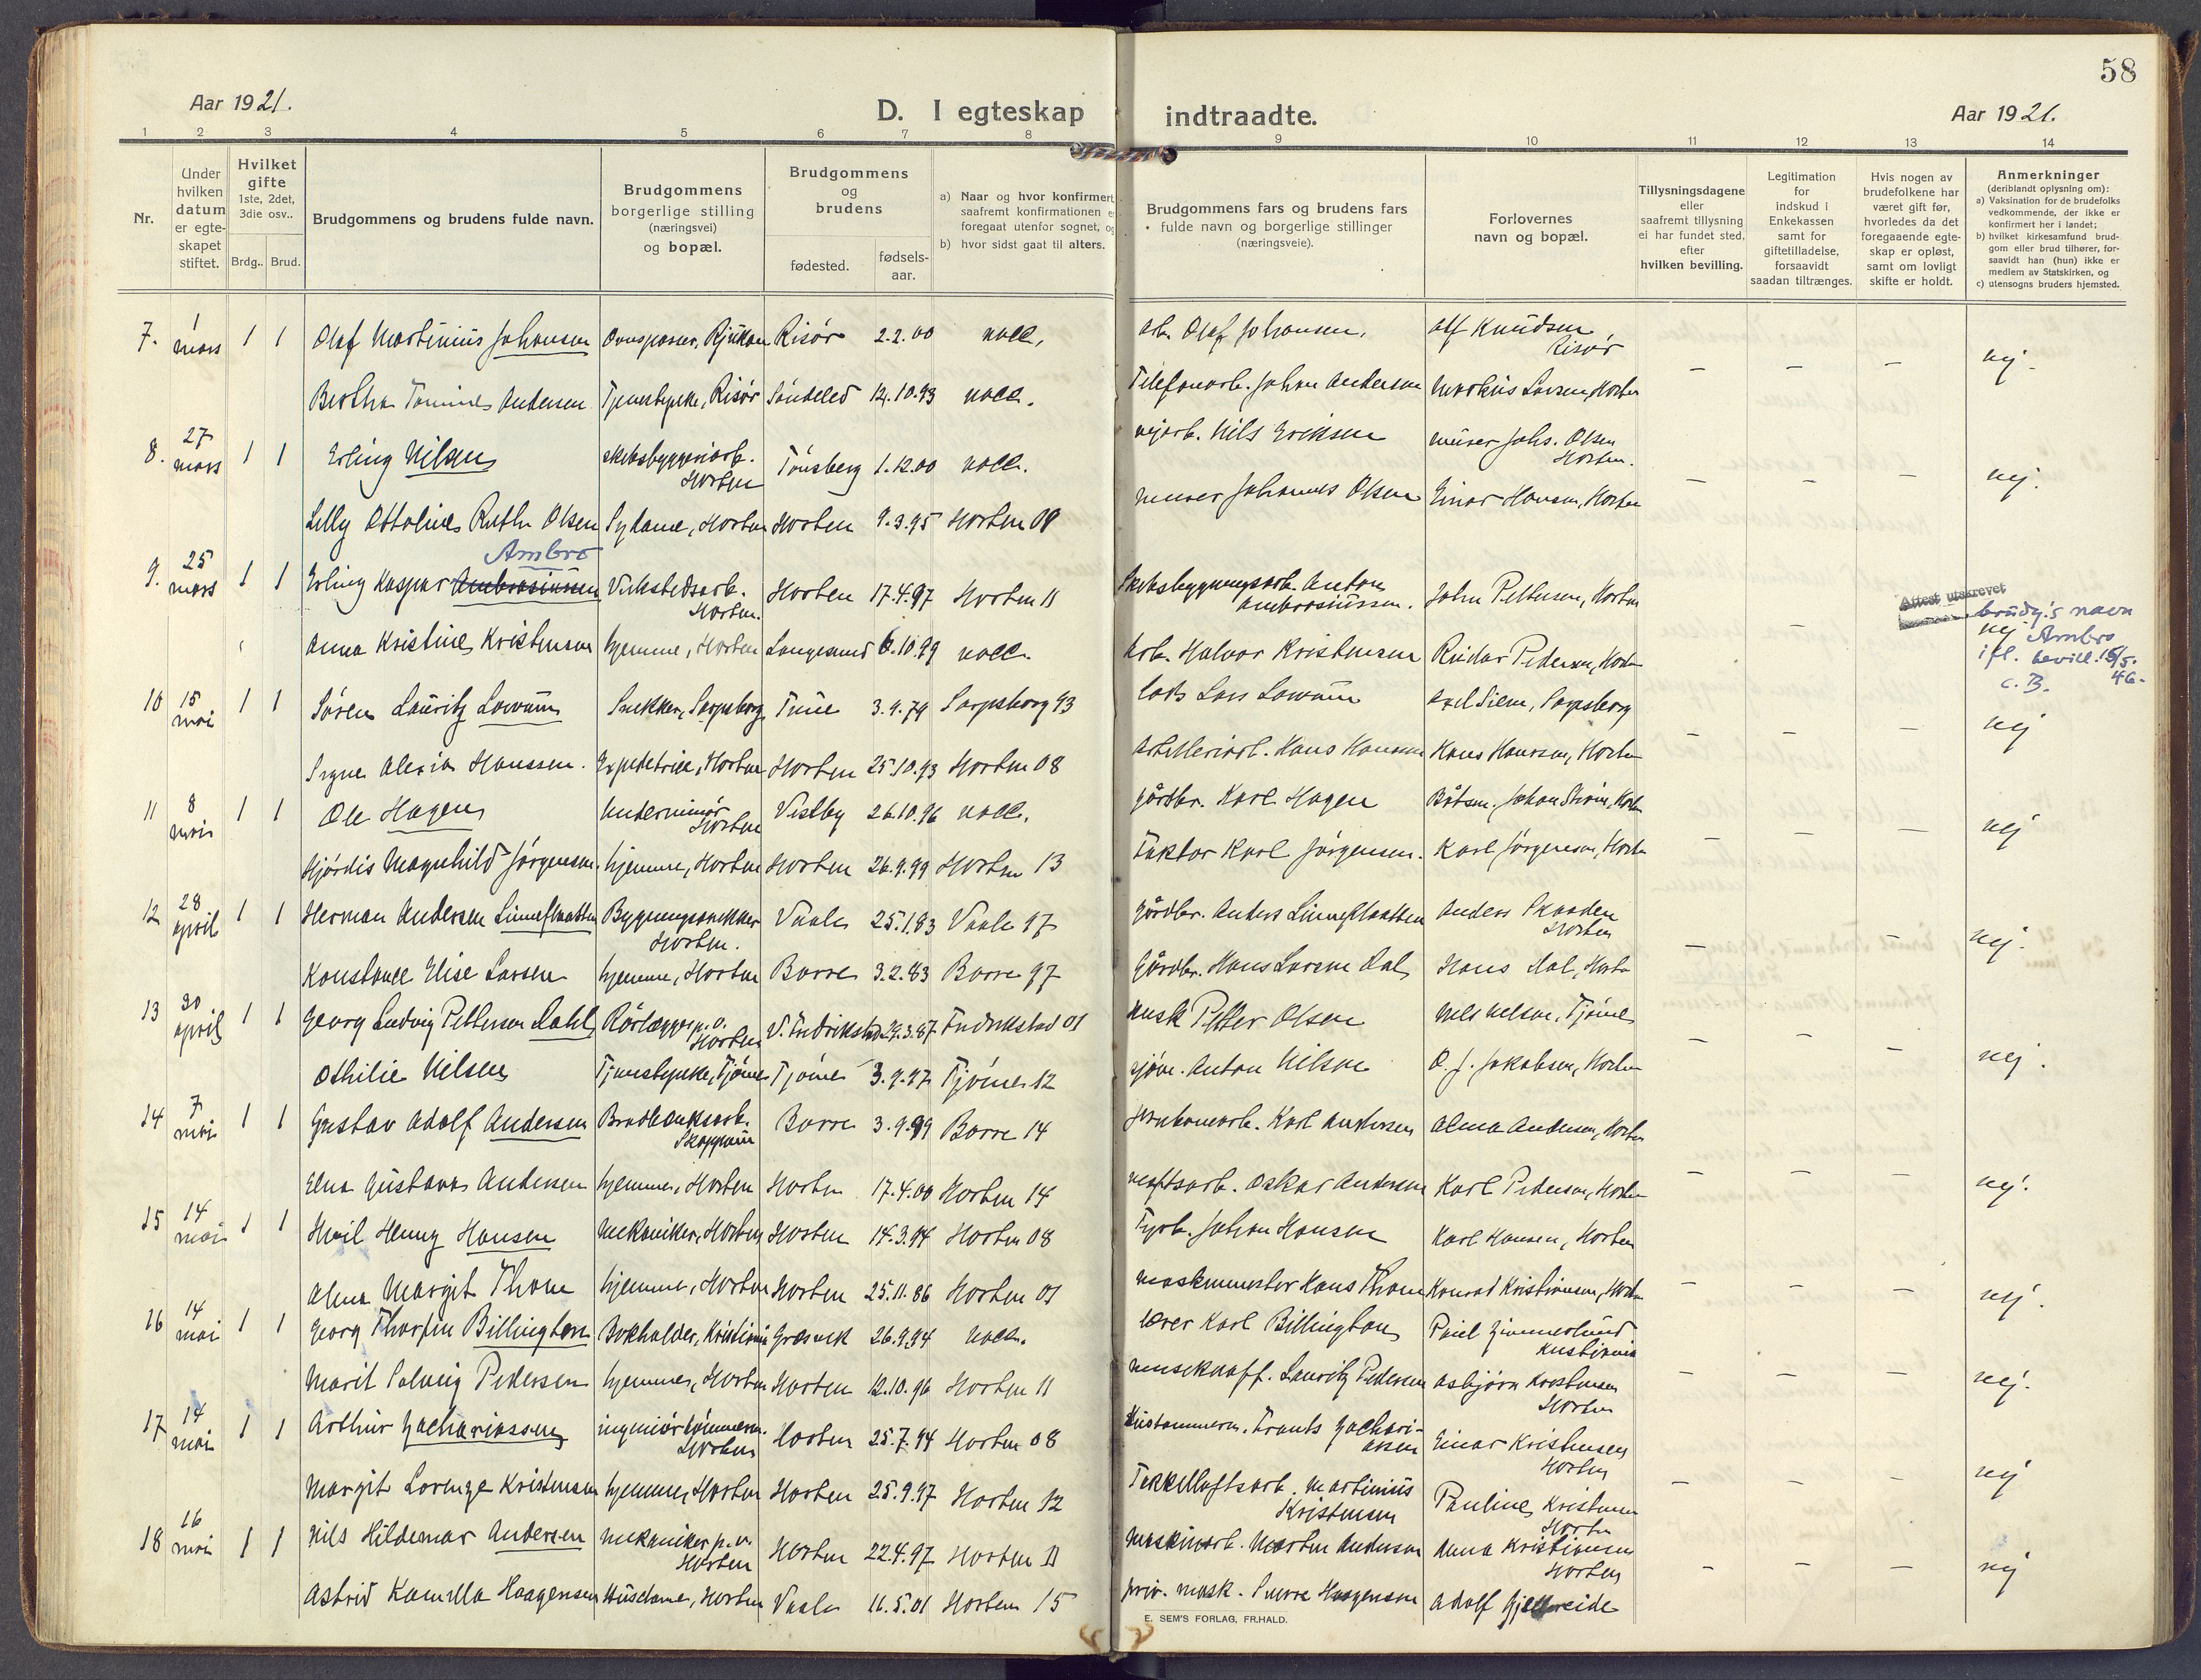 58
Aar 1921.
D. I egteskap indtraadte.
Aar 1921.
1 2 3 4 5 6 7 8 9 10 11 12 13 14
Nr.
Under hvilken datum er egte-skapet stiftet.
Hvilket gifte 1ste, 2det, 3die osv..
Brdg.. Brud.
Brudgommens og brudens fulde navn.
Brudgommens borgerlige stilling (næringsvei) og bopæl.
Brudgommens og brudens
fødested.
fødsels-aar.
a) Naar og hvor konfirmert
saafremt konfirmationen
foregaat utenfor sognet,
b) hvor sidst gaat til alters.
Brudgommens fars og brudens fars
fulde navn og borgerlige stillinger
(næringsveie).
Forlovernes
navn og bopæl.
Tillysningsdagene
eller
saafremt tillysning
ei har fundet sted,
efter
hvilken bevilling.
Legitimation
for
indskud i
Enkekassen
samt for
giftetilladelse,
forsaavidt
saadan tiltrænges.
Hvis nogen av
brudefolkene har
været gift før,
hvorledes da det
foregaaende egte-
skap er opløst,
samt om lovligt
skifte er holdt.
Anmerkninger
(deriblandt oplysning om):
a) Vaksination for de brudefolks
vedkommende, der ikke er
konfirmert her i landet;
b) hvilket kirkesamfund brud-
gom eller brud tilhører, for-
saavidt han (hun) ikke er
medlem av Statskirken, og
c) utensogns bruders hjemsted.
7. 1 mars 1 1 Olaf Martinius Johansen Ovnspasser, Rjukan Risør 2.2.00 vacc. arb. Olaf Johansen. Alf Knudsen, Risør
Bertha Tomine Andersen Tjenestpike, Risør Söndeled 12.10.93 vacc. Telefonarb. Johan Andersen Markus Larsen, Horten — — — nej.
8. 27 mars 1 1 Erling Nilsen skibsbyggeriarb. Horten Tönsberg 1.12.00 vacc. vejarb. Nils Eriksen murer Johs. Olsen Horten.
Lilly Ottoline Ruth Olsen Sydame, Horten Horten 9.3.95 Horten 09 murer Johannes Olsen Einar Hansen, Horten — — — nej.
Ambro
9. 25 mars 1 1 Erling Kaspar Ambrosiussen Verkstedsarb. Horten. Horten 17.4.97 Horten 11 Skibsbygningsarb. Anton Ambrosiussen. John Pettersen, Horten
Attest utskrevet
Anna Kristine Kristensen hjemme, Horten Langesund 6.10.99 vacc. Arb. Halvor Kristensen Reidar Pedersen, Horten — nej
brudg's navn
Ambro
ifl. bevill. 15/5.
46.
c. B.
10 15 mai 1 1 Sören Lauritz Lowum Snekker, Sarpsborg Tune 3.9.79 Sarpsborg 93 lods Lars Lowum Axel Siem, Sarpsborg
Signe Alexia Hanssen. Expeditrice, Horten Horten 25.10.93 Horten 08 Artilleriarb. Hans Hanssen Hans Hanssen, Horten — — — nej
11 8 mai 1 1 Ole Hagen Underminör Horten Vestby 26.10.96 vacc. gårdbr. Karl Hagen Båtsm. Johan Ström, Horten
Hjördis Magnhild Jörgensen. hjemme, Horten Horten 26.9.99 Horten 13 Faktor Karl Jörgensen. Karl Jörgensen, Horten — — — nej
12 28 april 1 1 Herman Andersen Linneflaatten Bygningssnekker Horten. Vaale 25.1.83 Vaale 97 Gårdbr. Anders Linneflaatten Anders Skaaden Horten
Konstance Elise Larsen hjemme, Horten Borre 3.2.83 Borre 97 Gårdbr. Hans Larsen Dal Hans Dal, Horten — — — nej.
13 30 april 1 1 Georg Ludvig Pettersen Dahl Rörlægger p.v. Horten V. Fredrikstad 29.3.87 Fredrikstad 01 Musk Petter Olsen Nels Nelsen, Tjöme
Othilie Nilsen Tjenestpike, Tjöme Tjöme 3.9.97 Tjöme 12 sjöm. Anton Nilsen O. J. Jakobsen, Horten — — — nej.
14 7 mai 1 1 Gustav Adolf Andersen Bradbænksarb. Skoppum Borre 3.9.99 Borre 14 Jernbanearb. Karl Andersen Alma Andersen, Horten
Elna Gustava Andersen hjemme, Horten Horten 17.4.00 Horten 14 verftsarb. Oskar Andersen Karl Pedersen, Horten — — — nej.
15 14 mai 1 1 Emil Henry Hansen Mekaniker, Horten Horten 14.3.94 Horten 08 Fyrb. Johan Hansen Karl Hansen, Horten
Alma Margit Thom hjemme, Horten Horten 25.11.86 Horten 01 Maskinmester Hans Thom Konrad Kristiansen, Horten — — — nej.
16 14 mai 1 1 Georg Thorfin Billington Bokholder, Kristiania Græsvik 26.9.94 vacc. lærer Karl Billington Paul Zimmerlund Kristiania
Marit Solveig Pedersen hjemme, Horten Horten 12.10.96 Horten 11 musiknaff. Lauritz Pedersen Asbjörn Kristensen Horten — — — nej.
17 14 mai 1 1 Arthur Zachariassen ingeniörtömmerm. Horten Horten 25.7.94 Horten 08 Hustömmerm. Frants Zachariassen Einar Kristensen Horten
Margit Lorenze Kristensen hjemme, Horten Horten 25.9.97 Horten 12 Tekkelloftsarb. Martinius Kristensen Pauline Kristensen Horten — — — nej
18 16 mai 1 1 Nils Hildemar Andersen Mekaniker p.v. Horten Horten 22.4.97 Horten 11 Maskinarb. Marten Andersen Anna Kristiansen Horten
Astrid Kamilla Haagensen Husdame, Horten Vaale 16.5.01 Horten 15 priv. mask. Sverre Haagensen Adolf Gjellreide — — — nej
E. SEM'S FORLAG, FR.HALD.